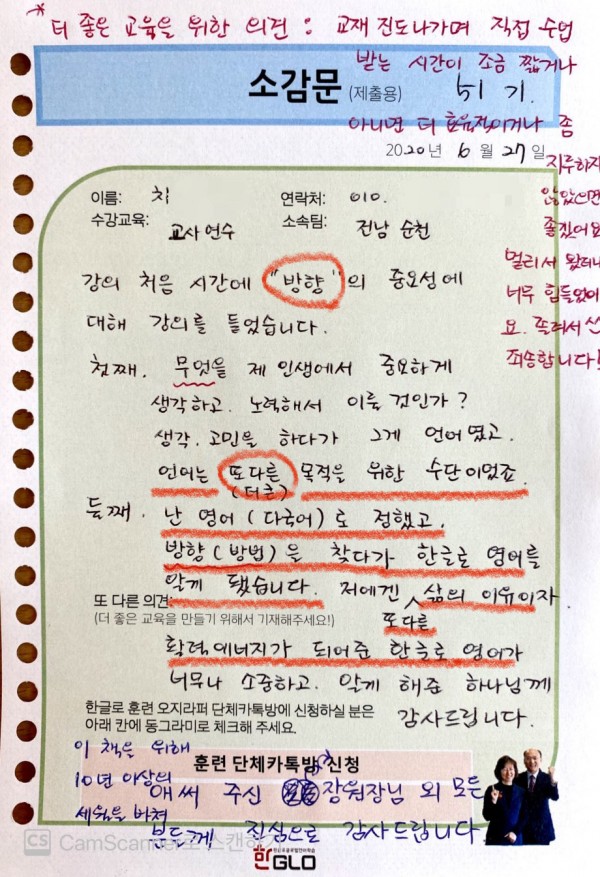 * 더 좋은 교육을 위한 의견 : 교재 진도나가며 직접 수업
받는 시간이 조금 짧게나
아니면 더 효율적이거나 좀
지루하지
않았으면
좋겠어요
멀리서 왔더니
너무 힘들었어
요. 졸려서
죄송합니다!
소감문 (제출용)
2020년 6월 27일
이름: 연락처: 010.
수강교육: 교사 연수 소속팀: 전남 순천
강의 처음 시간에 "방향"의 중요성에
대해 강의를 들었습니다.
첫째. 무엇을 제 인생에서 중요하게
생각하고. 노력해서 이룰 것인가?
생각. 고민을 하다가 그게 언어였고.
언어는 또다른 목적을 위한 수단이었죠.
(더큰)
둘째. 난 영어(다국어)로 정했고.
방향(방법)을 찾다가 한글로 영어를
알게 됐습니다. 저에겐 삶의 이유이자
또다른
또 다른 의견:
(더 좋은 교육을 만들기 위해서 기재해주세요!)
활력에너지가 되어준 한글로 영어가
너무나 소중하고. 알게 해준 하나님께
감사드립니다.
한글로 훈련 오지라퍼 단체카톡방에 신청하실 분은
아래 칸에 동그라미로 체크해 주세요.
훈련 단체카톡방 신청
이 책을 위해
10년 이상의
세월을 바쳐
애써 주신 장원장님 외 모든
분들께 진심으로 감사드립니다
CS CamScanner로 스캔하기
한GLO